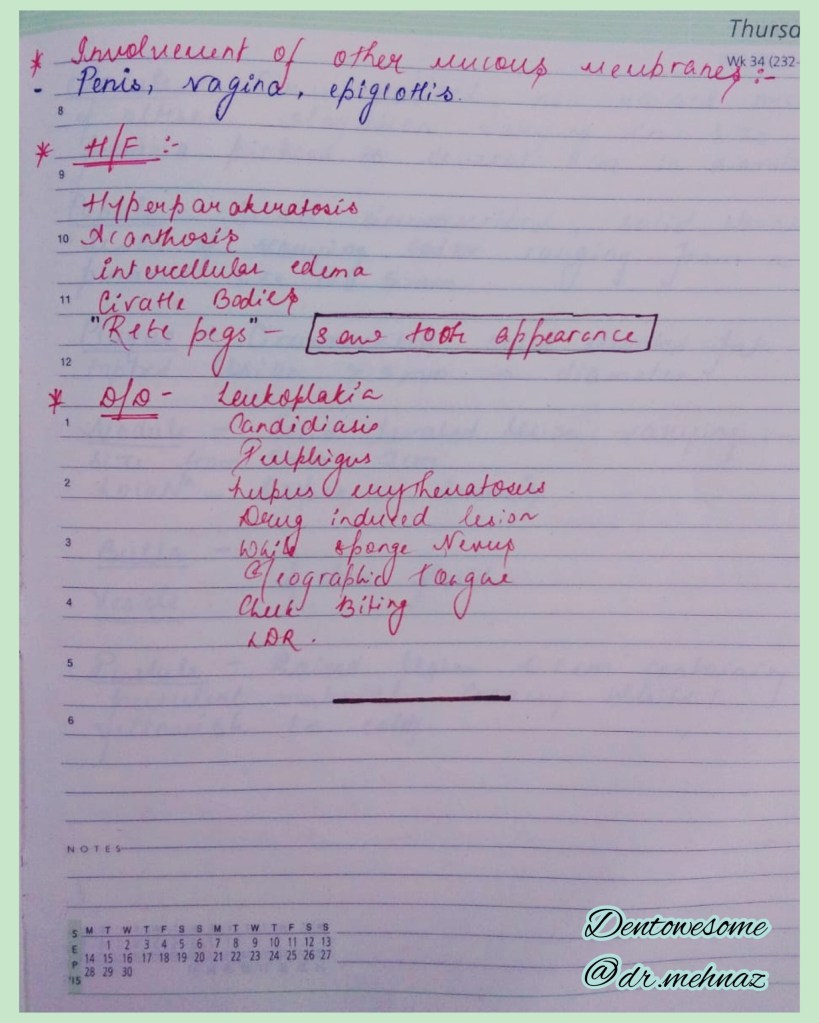 Thursd
Wk 34 (232-
* Involvement of other mucous membranes :-
- Penis, vagina, epiglottis.
8
* H/F :-
9
Hyperparakeratosis
10 Acanthosis
intercellular edema
11 Civatte Bodies
"Rete pegs" - saw tooth appearance
12
* D/D - Leukoplakia
1 Candidiasis
Pemphigus
2 Lupus erythematosus
Drug induced lesion
3 White sponge Nevus
Geographic tongue
4 Cheek Biting
LDR.
5
6
NOTES
SEP '15
M T W T F S S M T W T F S S
1 2 3 4 5 6 7 8 9 10 11 12 13
14 15 16 17 18 19 20 21 22 23 24 25 26 27
28 29 30
Dentowesome
@dr.mehnaz